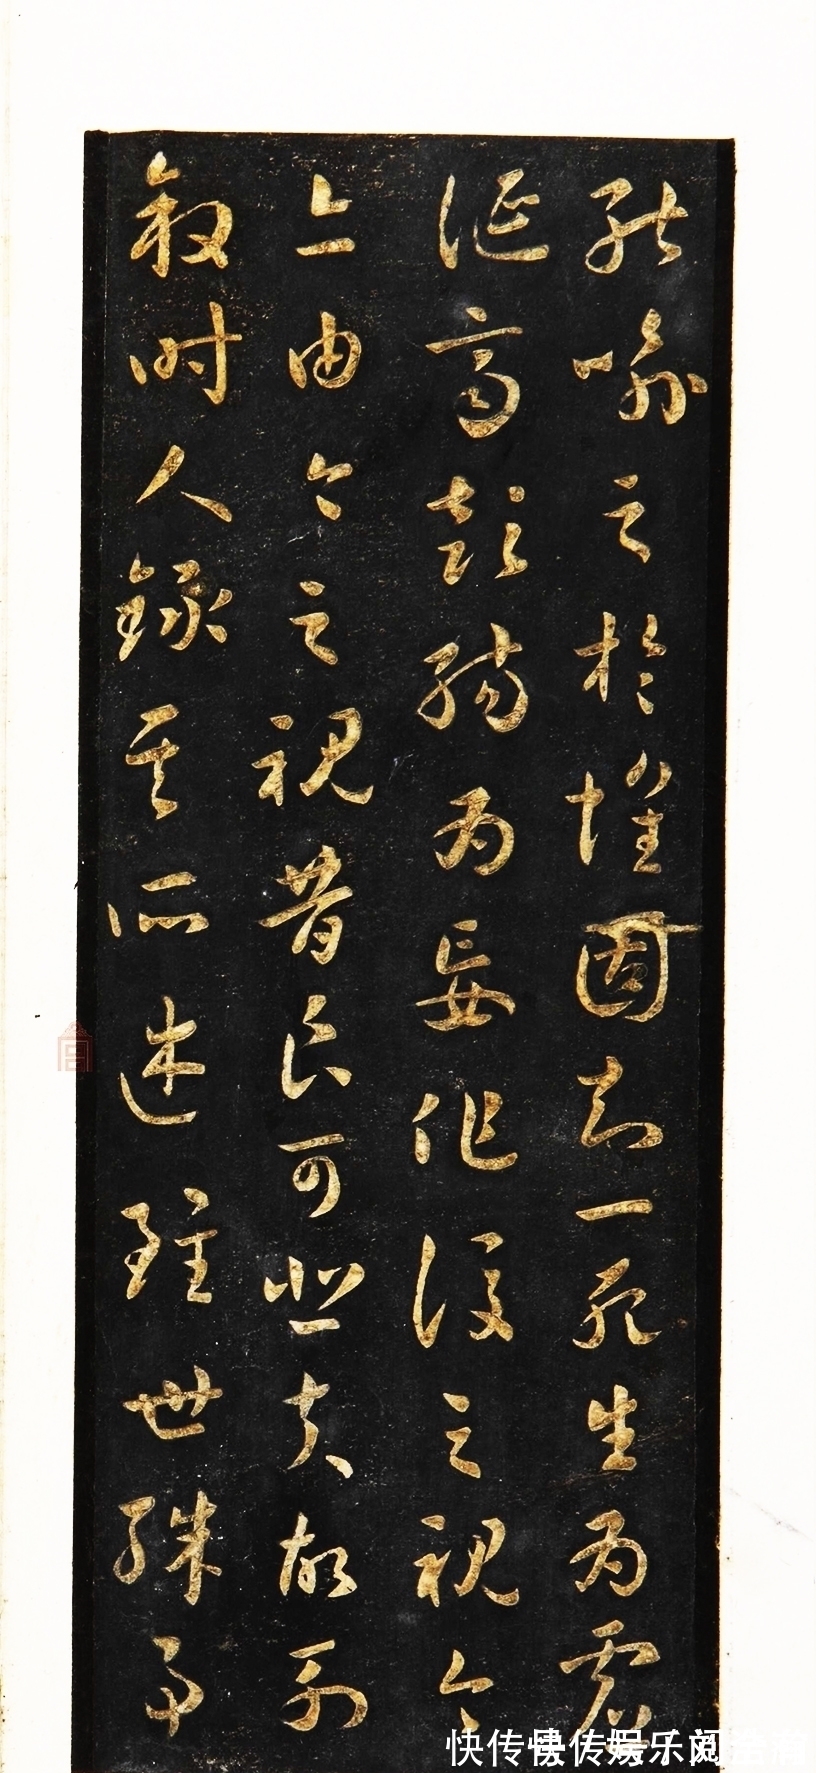 能喻之於懷固知一死生為虛
誕齊彭殤為妄作後之視今
亦由今之視昔良可悲夫故列
叙時人錄其所述雖世殊事
快传